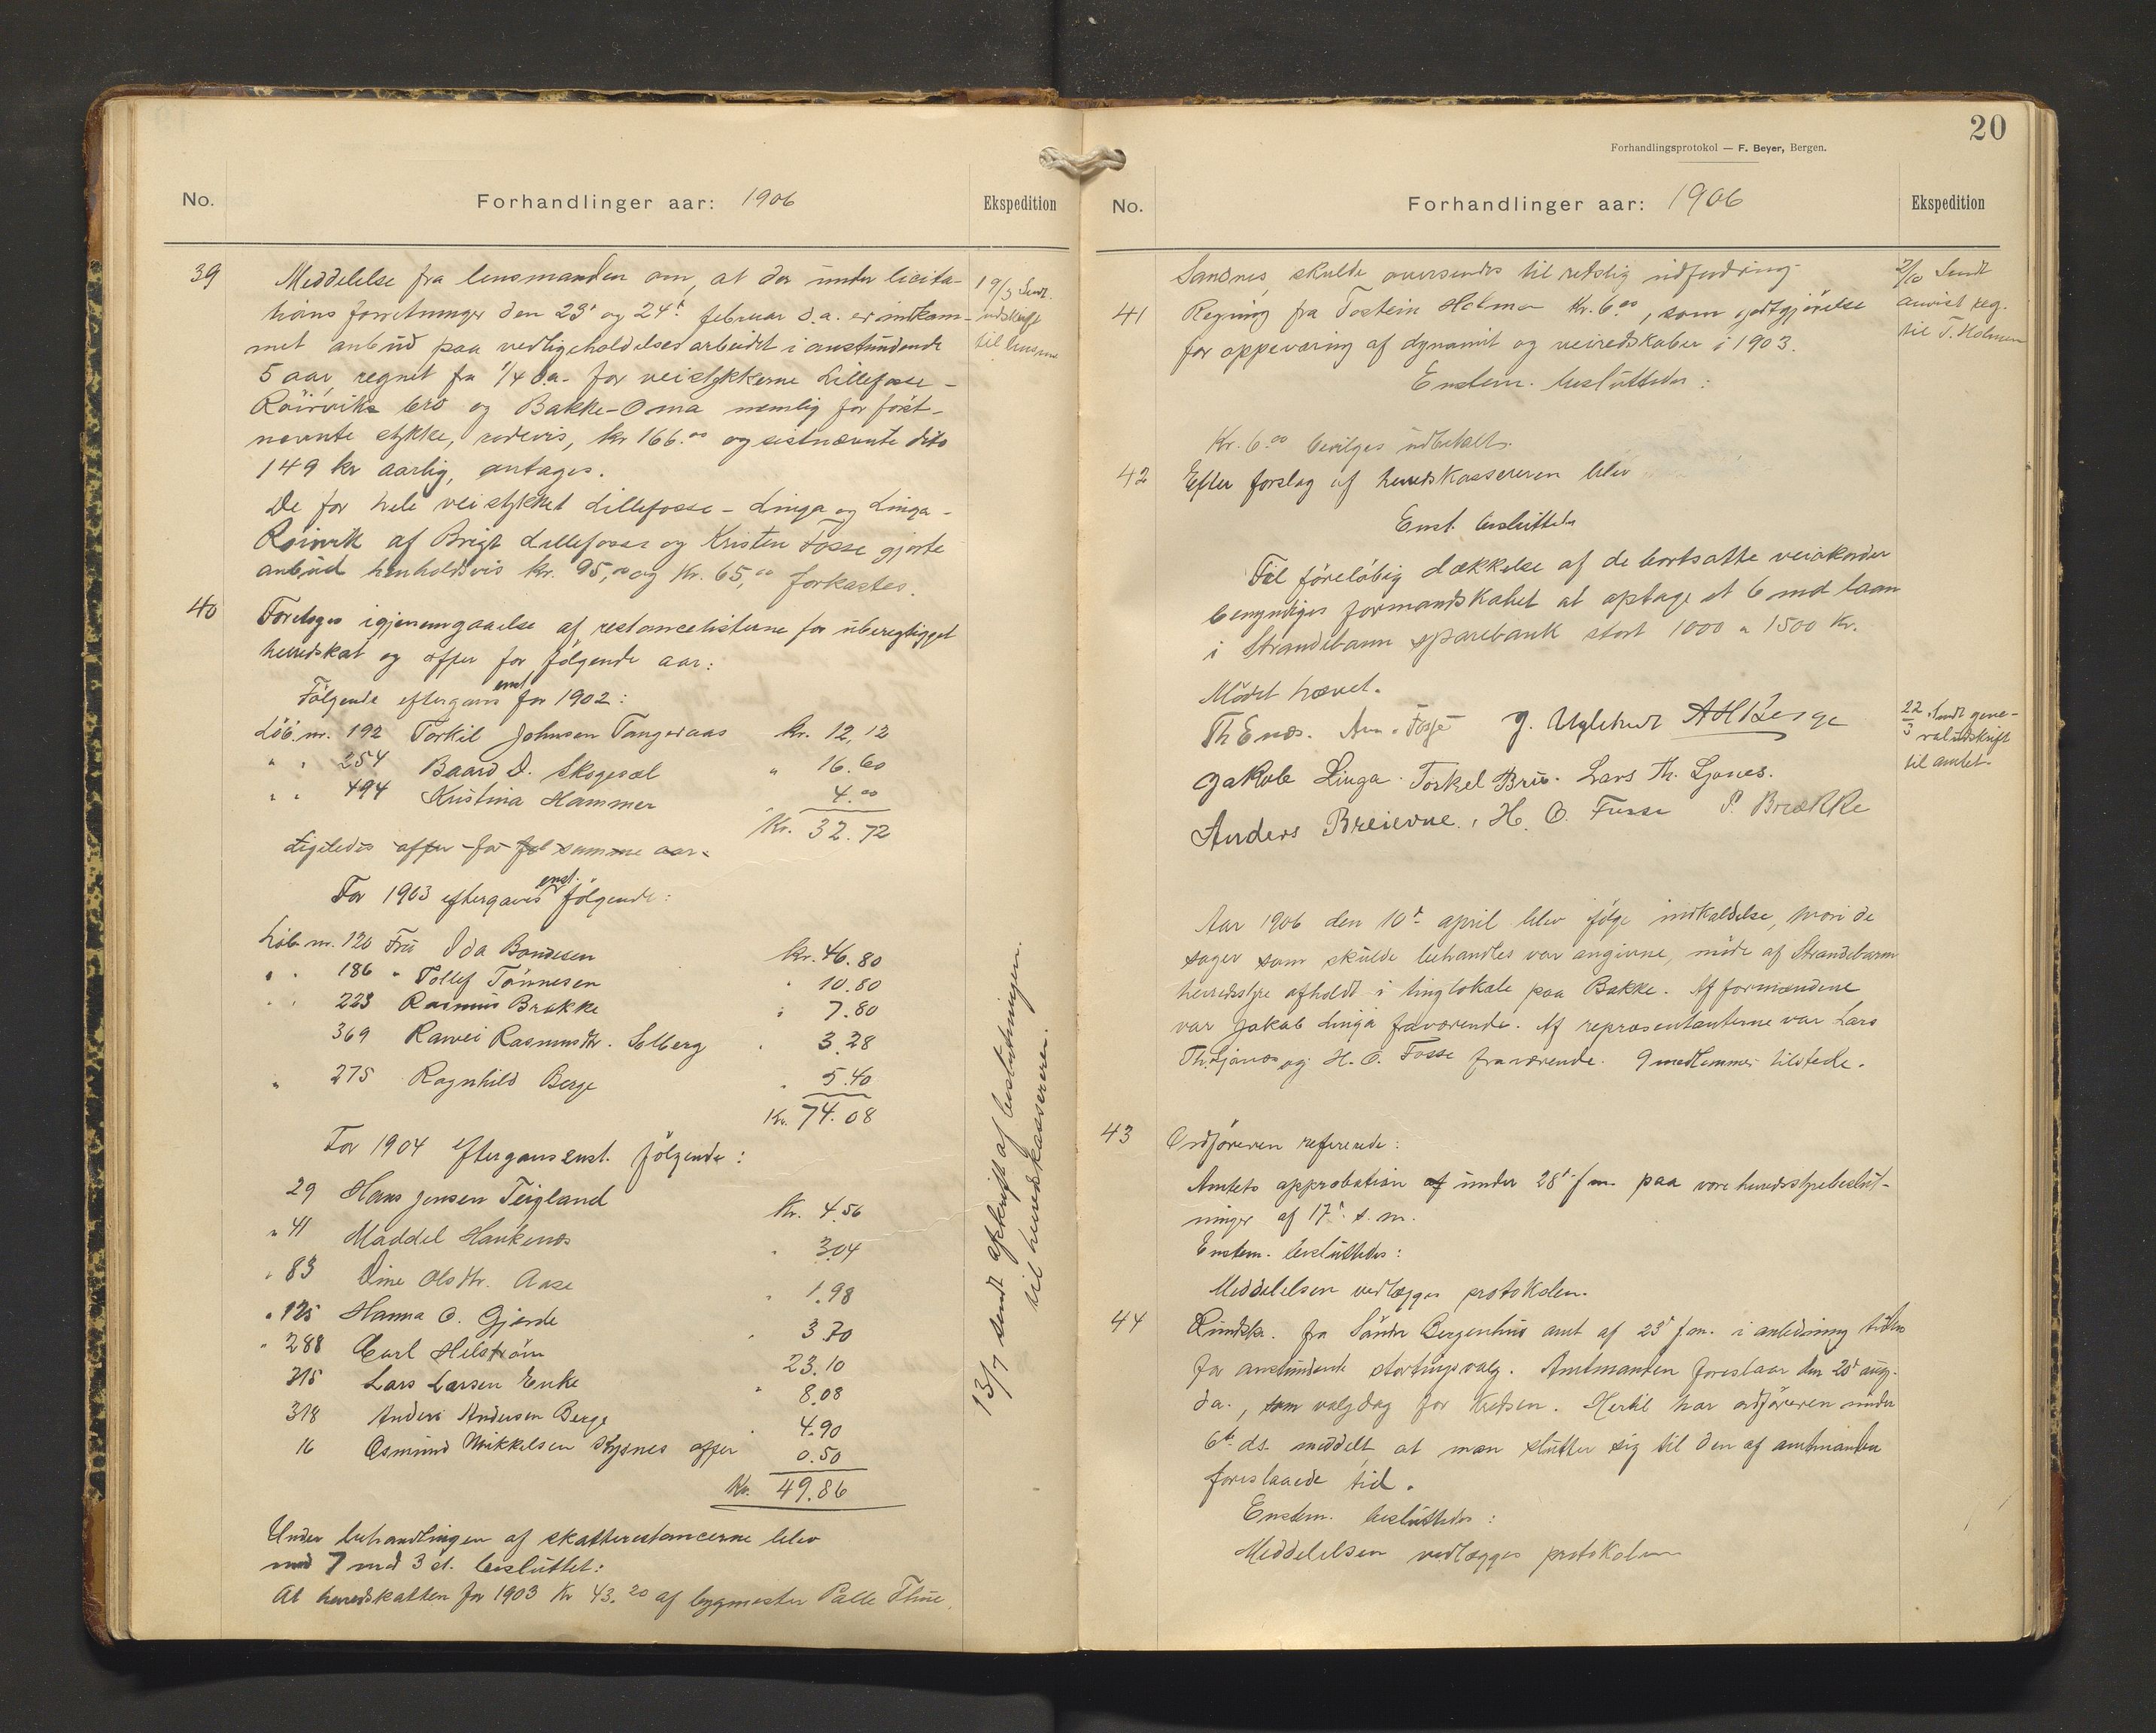 No.
Forhandlinger aar: 1906
Ekspedition
39
Meddelelse fra lensmanden om, at der under licita-
tions forretninger den 23' og 24' februar d.a. er indkom-
met anbud paa vedligeholdelsesarbeidet i anstundende
5 aar, regnet fra 1/4 d.a. for veistykkerne Lillefosse -
Röirviks bro og Bakke-Oma nemlig for först-
nævnte stykke, rodevis, kr 166.00 og sistnævnte dito
149 kr aarlig, antages.
De for hele veistykket Lillefosse - Linga og Linga -
Röirvik af Brigt Lillefosse og Kristen Fosse gjorte
anbud henholdsvis kr. 95,00 og Kr. 65,00 forkastes.
19/3 Sendt
udskrift
til lensm
40
Foretoges igjennemgaaelse af restancelisterne for uberegtigget
herredskat og offer for følgende aar:
Følgende eftergaves enst for 1902:
Löb. nr. 192 Torkil Johnsen Tangeraas kr. 12,12
" " 254 Baard D. Skogesæl " 16.60
" " 494 Kristina Hammer " 4.00
Kr. 32.72
Ligeledes offer for fol samme aar.
For 1903 eftergaves enst. følgende:
Löb nr. 120 Fru Ida Bondesen kr. 46.80
" " 186 " Tollef Tönnesen " 10.80
" " 223 Rasmus Brække " 7.80
369 Ranvei Rasmusdtr. Solberg " 3.28
" 275 Ragnhild Berge " 5.40
Kr. 74.08
For 1904 eftergaves enst. følgende:
29 Hans Jensen Teigland Kr. 4.56
" 41 Maddel Haukenæs " 3.04
" 83 Line Olsdtr. Aase " 1.98
" 125 Hanna O. Gjerde " 3.70
" 288 Carl Helström 23.10
315 Lars Larsen Enke " 8.08
318 Anders Andersen Berge " 4.90
16 Osmund Mikkelsen Skysnes offer 0.50
Kr. 49.86
Under behandlingen af skatterestancerne blev
med 7 mod 3 st. besluttet:
At herredskatten for 1903 Kr 43.20 af bygmester Palle Thue,
13/7 sendt afskrift af beslutningen
til herredskassereren.
20
Forhandlingsprotokol — F. Beyer, Bergen.
No.
Forhandlinger aar: 1906
Ekspedition
Sandnes, skulde oversendes til retslig inddrivning.
41
Regning fra Tostein Holmen Kr. 6.00, som godtgjörelse
for oppevaring af dynamit og veiredskaber i 1903.
Enstem. besluttedes:
Kr. 6.00 bevilges udbetalt.
2/10 Sendt
anvist reg.
til T. Holmen
42
Efter forslag af herredskassereren blev
Enst. besluttet
Til föreløbig dækkelse af de bortsatte veiakorder
bemyndiges formandskabet at optage et 6 md laan
i Strandebarm sparebank stort 1000 a 1500 Kr.
Mödet hævet.
Th Enæs. Am. Fosse J. Uglehus A H Berge
Jakob Linga. Torkel Bru. Lars Th. Ljones.
Anders Breievne. H. O. Fosse P. Brække
22/3 Sendt gene-
raludskrift
til amtet.
Aar 1906 den 10' april blev ifølge indkaldelse, hvori de
sager som skulde behandles var angivne, möde af Strandebarm
herredsstyre afholdt i tinglokale paa Bakke. Af formændene
var Jakob Linga fraværende. Af repræsentanterne var Lars
Th. Ljones og H. O. Fosse fraværende. 9 medlemmer tilstede.
43
Ordføreren refererede:
Amtets approbation af under 28' f.m. paa vore herredsstyrebeslut-
ninger af 17' s.m.
Enstem. besluttedes:
Meddelelsen vedlægges protokolen.
44
Rundskr. fra Söndre Bergenhus amt af 23' f.m. i anledning tiden
for anstundende stortingsvalg. Amtmanden foreslaar den 20' aug.
d.a., som valgdag for Kredsen. Hertil har ordføreren under
6te ds. meddelt at man slutter sig til den af amtmanden
foreslaaede tid.
Enstem. besluttedes:
Meddelelsen vedlægges protokolen